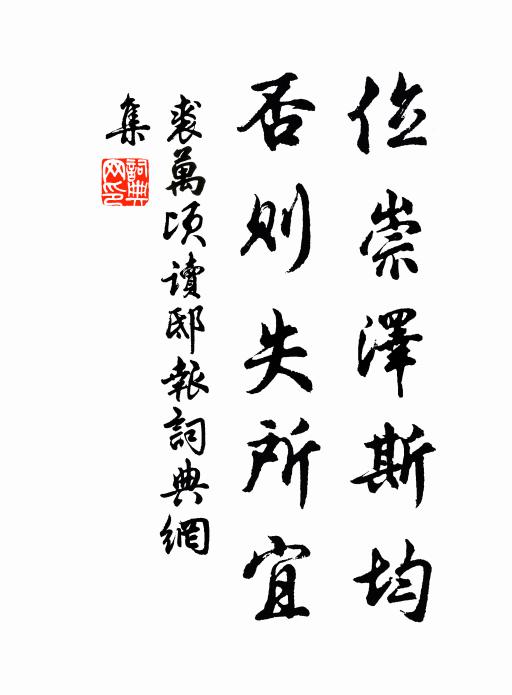 位崇澤斯均
否則失所宜
裘萬頃讀邸報詞典網
集
詞典
网印